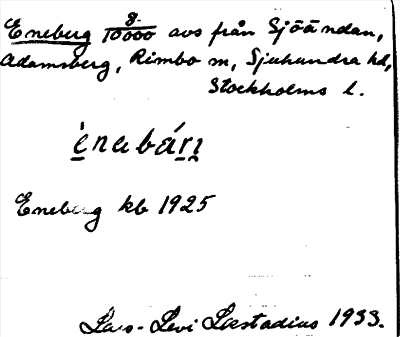 Eneberg 8/10000 avs från Sjöändan,
Adamsberg, Rimbo sn, Sjuhundra hd,
Stockholms l.
è̱nabáṟı̱
Eneberg kb 1925
Lars-Levi Læstadius 1933.